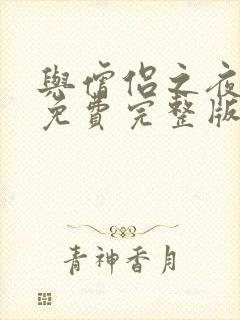 與僧侶之夜
免費完整版
青神香月